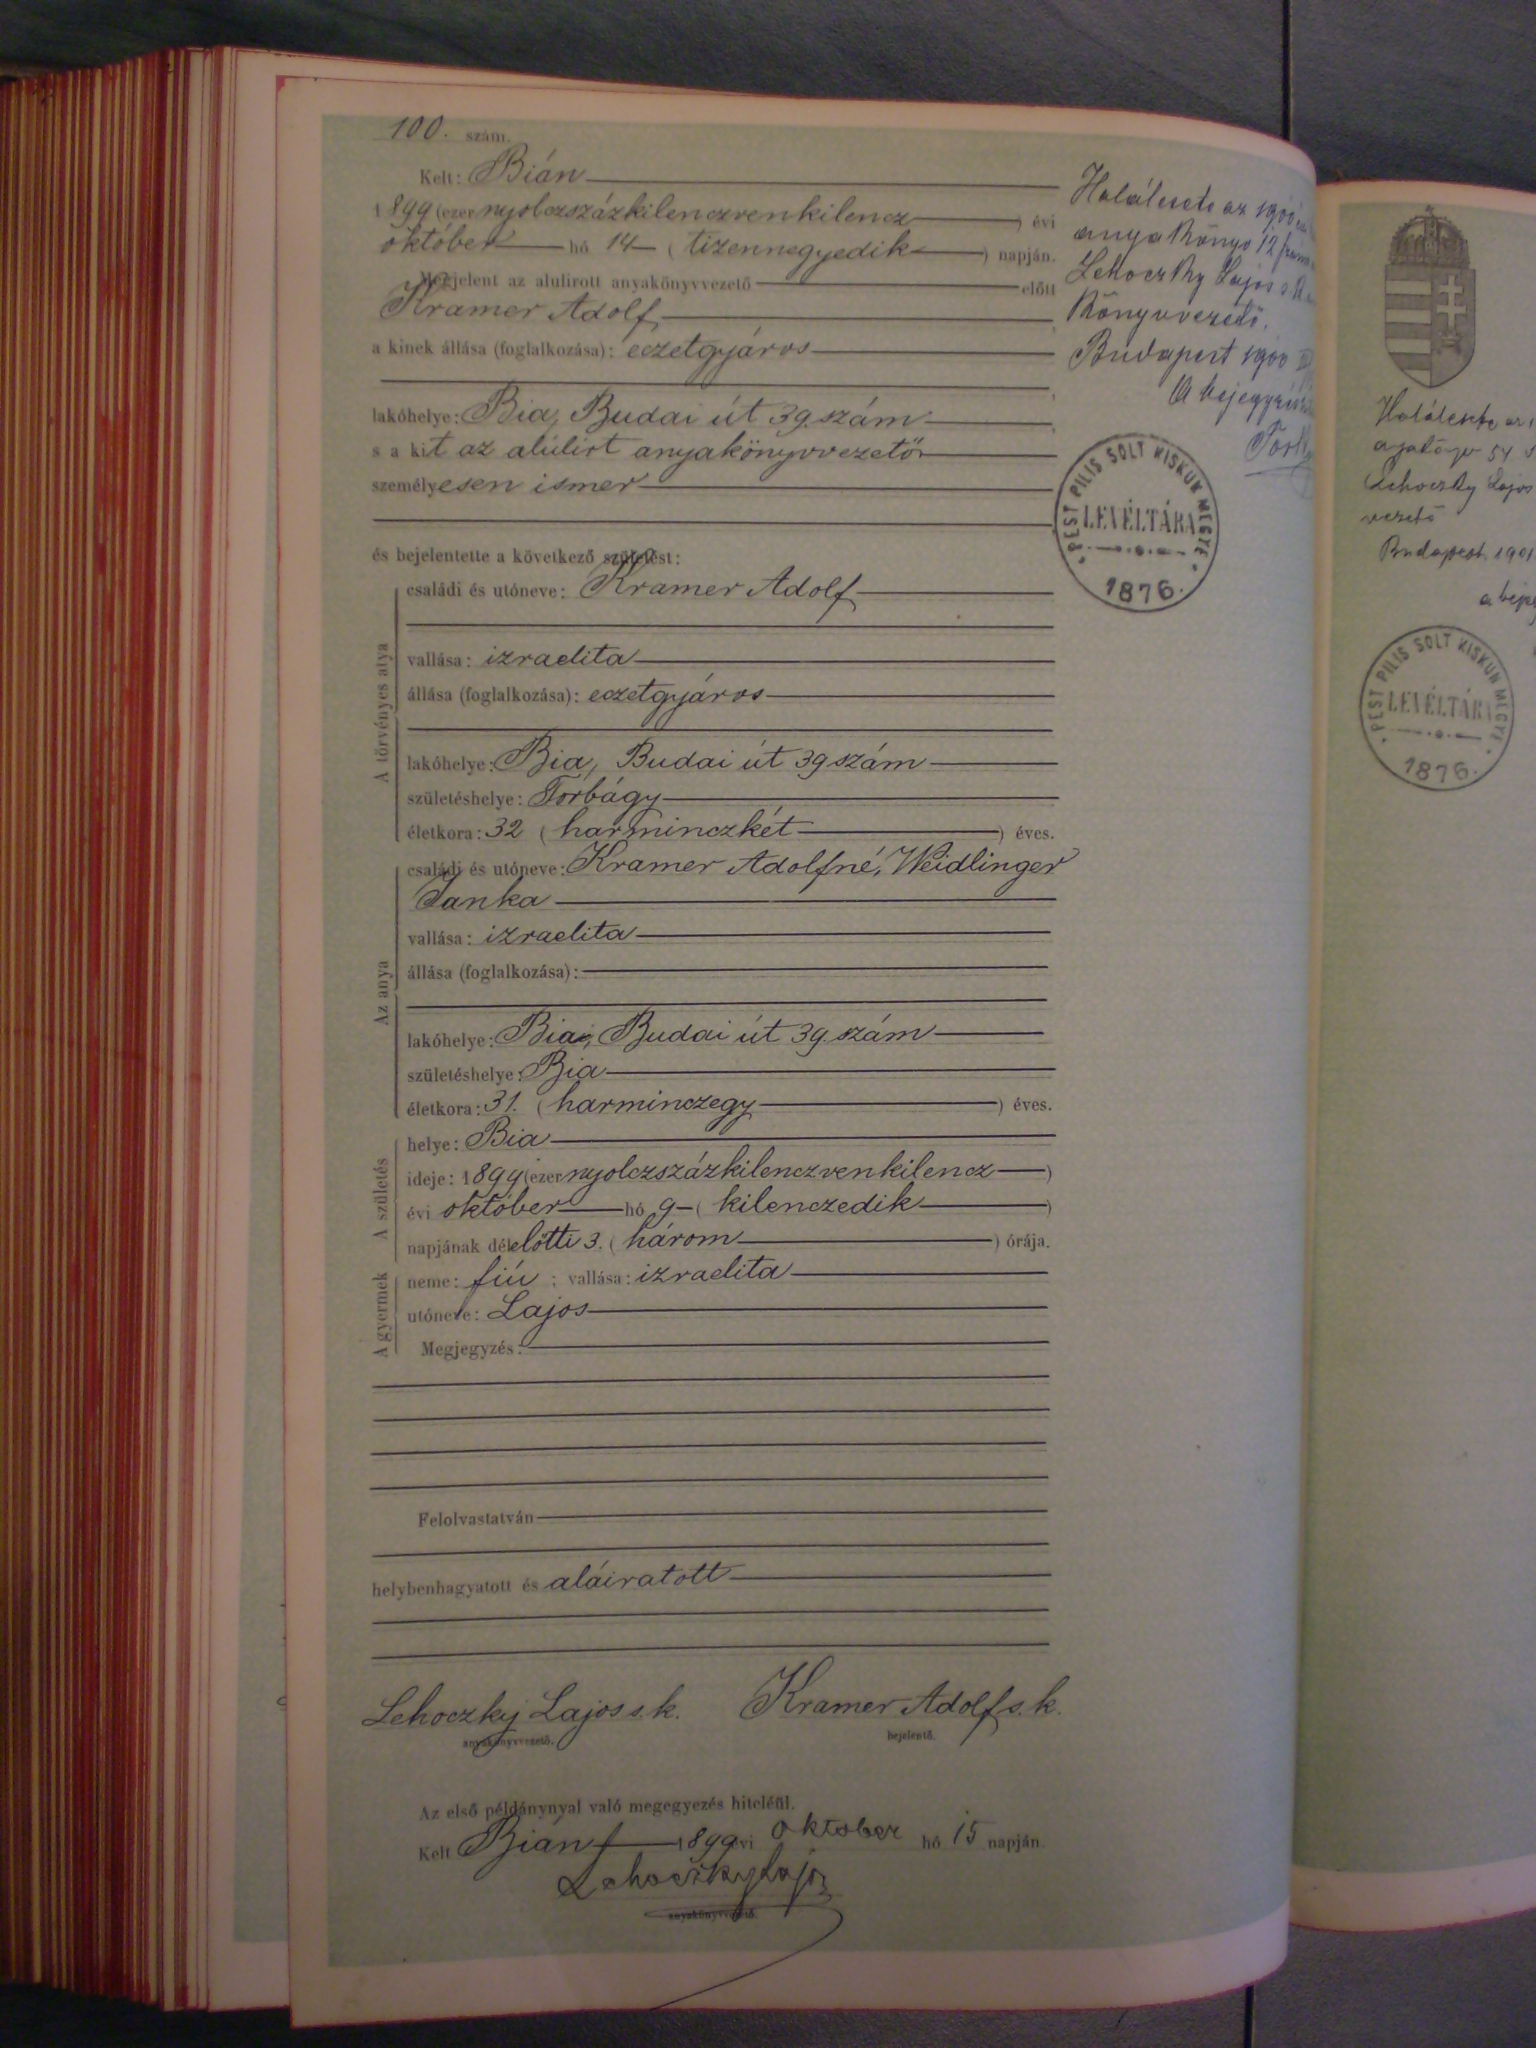 100. szám.
Kelt: Bián
1899 (ezernyolczszázkilenczvenkilencz) évi
október hó 14 (tizennegyedik) napján.
Megjelent az alulirott anyakönyvvezető előtt
Kramer Adolf,
a kinek állása (foglalkozása): eczetgyáros
lakóhelye: Bia, Budai út 39. szám
s a kit az alúlirt anyakönyvvezető
személyesen ismer
és bejelentette a következő születést:
A törvényes atya
családi és utóneve: Kramer Adolf
vallása: izraelita
állása (foglalkozása): eczetgyáros
lakóhelye: Bia, Budai út 39 szám
születéshelye: Torbágy
életkora: 32 (harminczkét) éves.
Az anya
családi és utóneve: Kramer Adolfné, Weidlinger
Janka
vallása: izraelita
állása (foglalkozása):
lakóhelye: Bia, Budai út 39. szám
születéshelye: Bia
életkora: 31. (harminczegy) éves.
A születés
helye: Bia
ideje: 1899 (ezernyolczszázkilenczvenkilencz)
évi október hó 9 (kilenczedik)
napjának délelőtti 3. (három) órája.
A gyermek
neme: fiú ; vallása: izraelita
utóneve: Lajos
Megjegyzés:
Felolvastatván
helybenhagyatott és aláiratott
Lehoczky Lajos s. k. Kramer Adolf s. k.
anyakönyvvezető. bejelentő.
Az első példánynyal való megegyezés hiteléül.
Kelt Bián 1899 évi október hó 15 napján.
Lehoczky Lajos
anyakönyvvezető.
Halálesete az 1900
anyakönyv 12 szám
Lehoczky Lajos
könyvvezető.
Budapest 1900
A bejegyzés
PEST PILIS SOLT KISKUN MEGYE
LEVÉLTÁRA
1876.
Halálesete az
54
Lehoczky Lajos
vezető
Budapest 1901
a
PEST PILIS SOLT KISKUN MEGYE
LEVÉLTÁRA
1876.